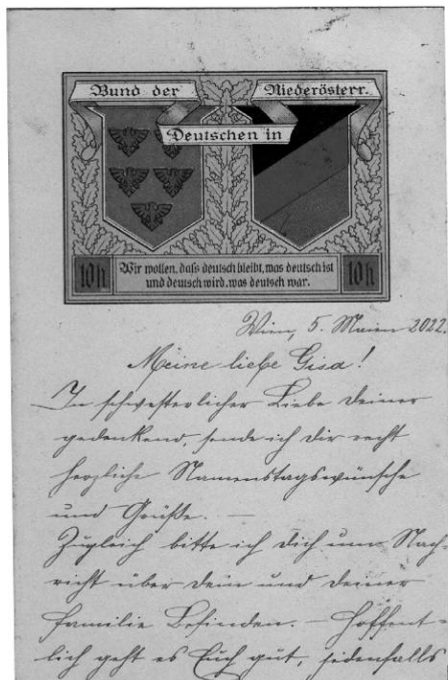 Bund der Niederösterr.
Deutschen in
10 h Wir wollen, daß deutsch bleibt, was deutsch ist 10 h
und deutsch wird, was deutsch war.
Wien, 5. Maien 2022.
Meine liebe Gisa!
In schwesterlicher Liebe deiner
gedenkend, sende ich dir recht
herzliche Namenstagswünsche
und Grüße. —
Zugleich bitte ich dich um Nach-
richt über dein und deiner
Familie Befinden. — Hoffent-
lich geht es Euch gut, jedenfalls